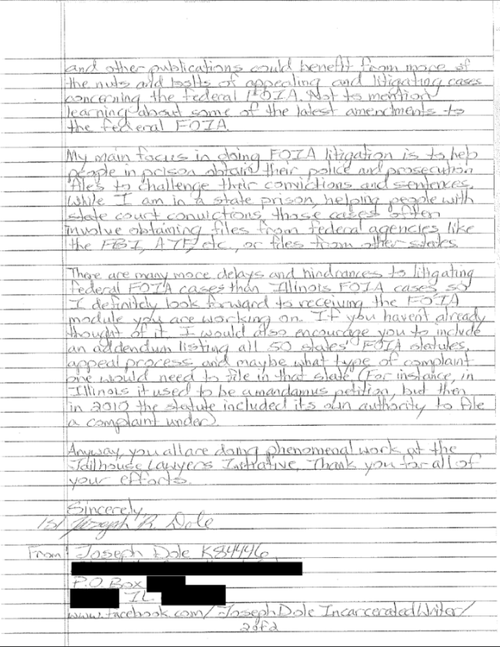 and other publications could benefit from more of
the nuts and bolts of appealing and litigating cases
concerning the federal FOIA. Not to mention
learning about some of the latest amendments to
the federal FOIA.
My main focus in doing FOIA litigation is to help
people in prison obtain their police and prosecution
files to challenge their convictions and sentences.
While I am in a state prison, helping people with
state court convictions, those cases often
involve obtaining files from federal agencies like
the FBI, ATF, etc., or files from other states.
There are many more delays and hindrances to litigating
federal FOIA cases than Illinois FOIA cases so
I definitely look forward to receiving the FOIA
module you are working on. If you haven't already
thought of it I would also encourage you to include
an addendum listing all 50 states' FOIA statutes,
appeal process, and maybe what type of complaint
one would need to file in that state (For instance, in
Illinois it used to be a mandamus petition, but then
in 2010 the statute included its own authority to file
a complaint under).
Anyway, you all are doing phenomenal work at the
Jailhouse Lawyers Initiative. Thank you for all of
your efforts.
Sincerely,
/s/ Joseph R. Dole
From: Joseph Dole K84446
P.O. Box
IL
www.facebook.com/JosephDoleIncarceratedWriter/
2 of 2